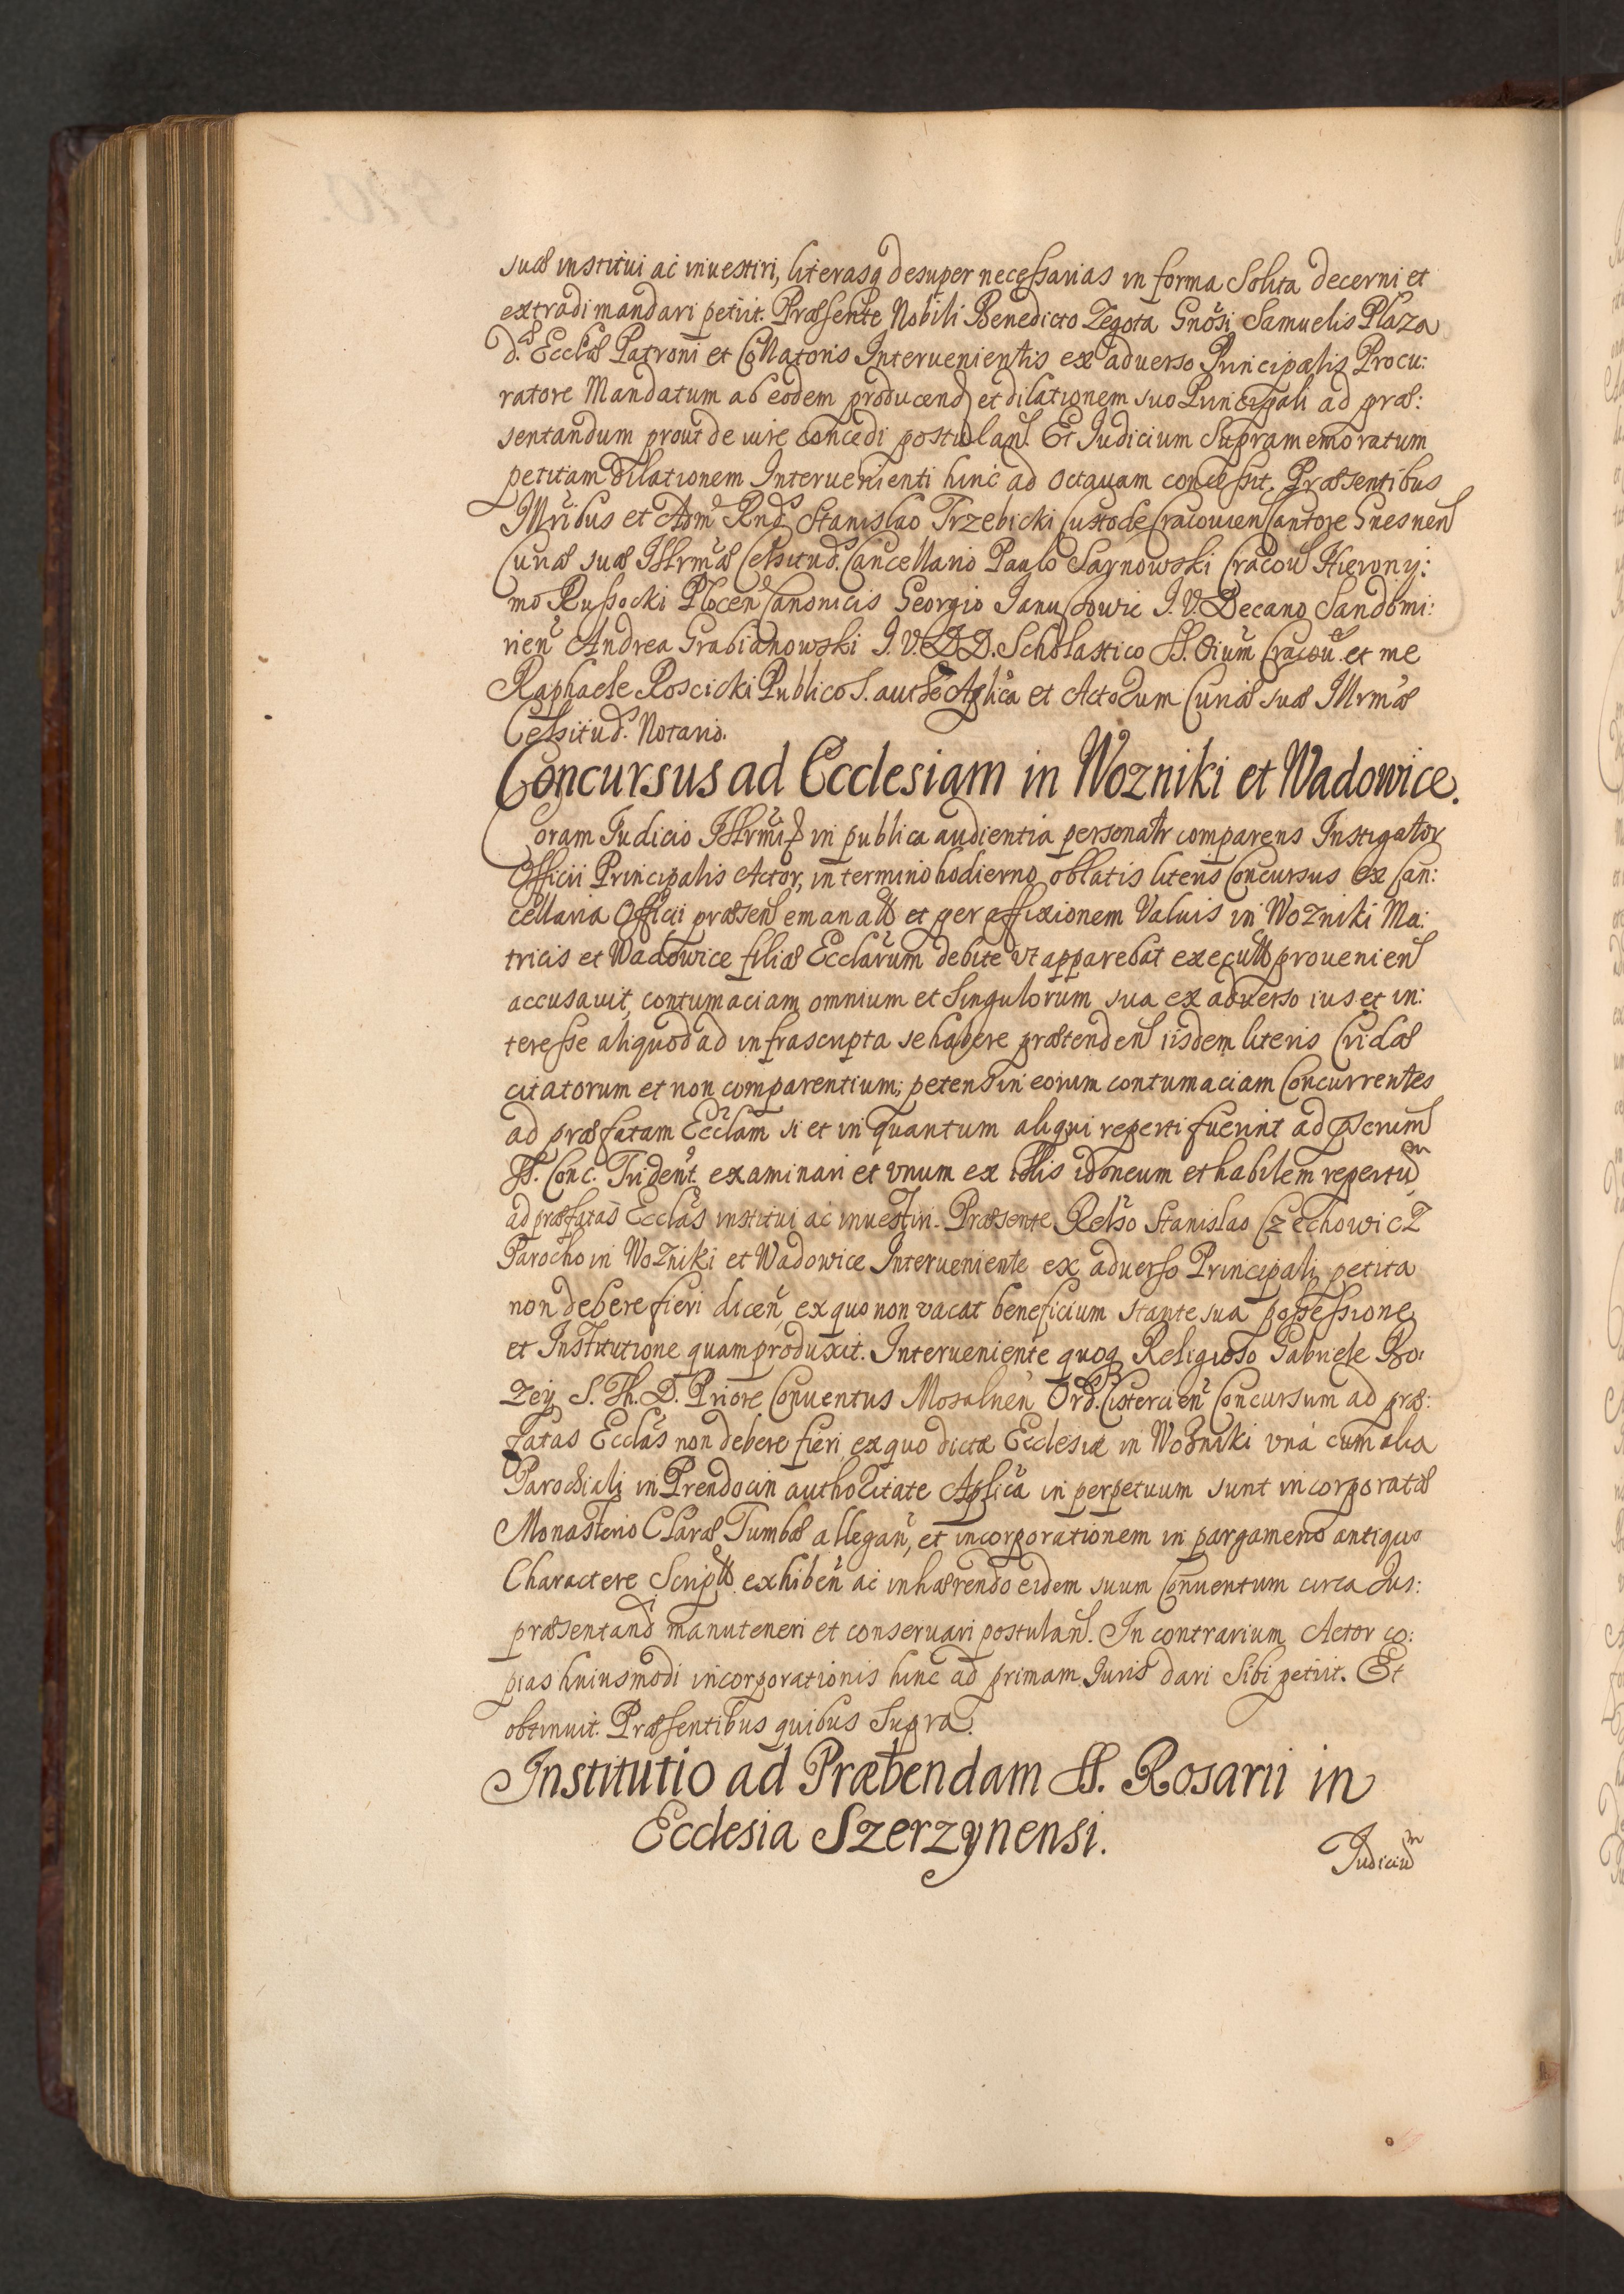 suæ institui ac inuestiri, literasq desuper necessarias in forma solita decerni et
extradi mandari petiit. Præsente Nobili Benedicto Zegota Gnosi Samuelis Plaza
d. Ecclæ Patroni et Collatoris Interuenientis ex aduerso Principalis Procu:
ratore Mandatum ab eodem producend et dilationem suo Principali ad præ:
sentandum prout de iure concedi postulan. Et Iudicium supramemoratum
petitam dilationem Interuenienti hinc ad octauam concessit. Præsentibus
Illribus et Adm Rnd Stanislao Trzebicki Custode Cracouien Cantore Gnesnen
Curiæ suæ Illrmæ Celsitud. Cancellario Paulo Sarnowski Cracou Hierony:
mo Russocki Plocen Canonicis Georgio Ianuszowic I. V. Decano Sandomi:
rien Andrea Grabianowski I. V. D D. Scholastico SS. Oium Cracou. et me
Raphaele Roscicki Publico S. authe Aplica et Actorum Curiæ suæ Illrmæ
Celsitud. Notario.
Concursus ad Ecclesiam in Wozniki et Wadowice.
Coram Iudicio Illrmi in publica audientia personalr comparens Instigator
Officii Principalis Actor, in termino hodierno oblatis literis Concursus ex Can:
cellaria Officii præsen emanat et per affixionem Valuis in Wozniki Ma:
tricis et Wadowice filiæ Ecclarum debite vt apparebat execut prouenien
accusauit contumaciam omnium et singulorum sua ex aduerso ius et in:
teresse aliquod ad infrascripta se habere prætenden iisdem literis Cridæ
citatorum et non comparentium; petens in eorum contumaciam Concurrentes
ad præfatam Ecclam si et in quantum aliqui reperti fuerint ad pscrium
SS. Conc. Trident. examinari et vnum ex illis idoneum et habilem repertum
ad præfatas Ecclas institui ac inuestiri. Præsente Relso Stanislao Czechowicz
Parocho in Wozniki et Wadowice Interueniente ex aduerso Principali petita
non debere fieri dicen, ex quo non vacat beneficium stante sua possessione
et Institutione quam produxit. Interueniente quoq Religioso Gabriele Bo:
zey S. Th. D. Priore Conuentus Mogilnen Ord. Cistercien Concursum ad præ:
fatas Ecclas non debere fieri, ex quo dictæ Ecclesiæ in Wozniki vná cum alia
Parochiali in Prendocin authoritate Aplica in perpetuum sunt incorporatæ
Monasterio Claræ Tumbæ allegan, et incorporationem in pargameno antiquo
Charactere Script exhiben ac inhærendo eidem suum Conuentum circa Ius:
præsentand manuteneri et conseruari postulan. In contrarium Actor co:
pias huiusmodi incorporationis hinc ad primam Iuris dari sibi petiit. Et
obtinuit. Præsentibus quibus supra.
Institutio ad Præbendam SS. Rosarii in
Ecclesia Szerzynensi.
Iudicium